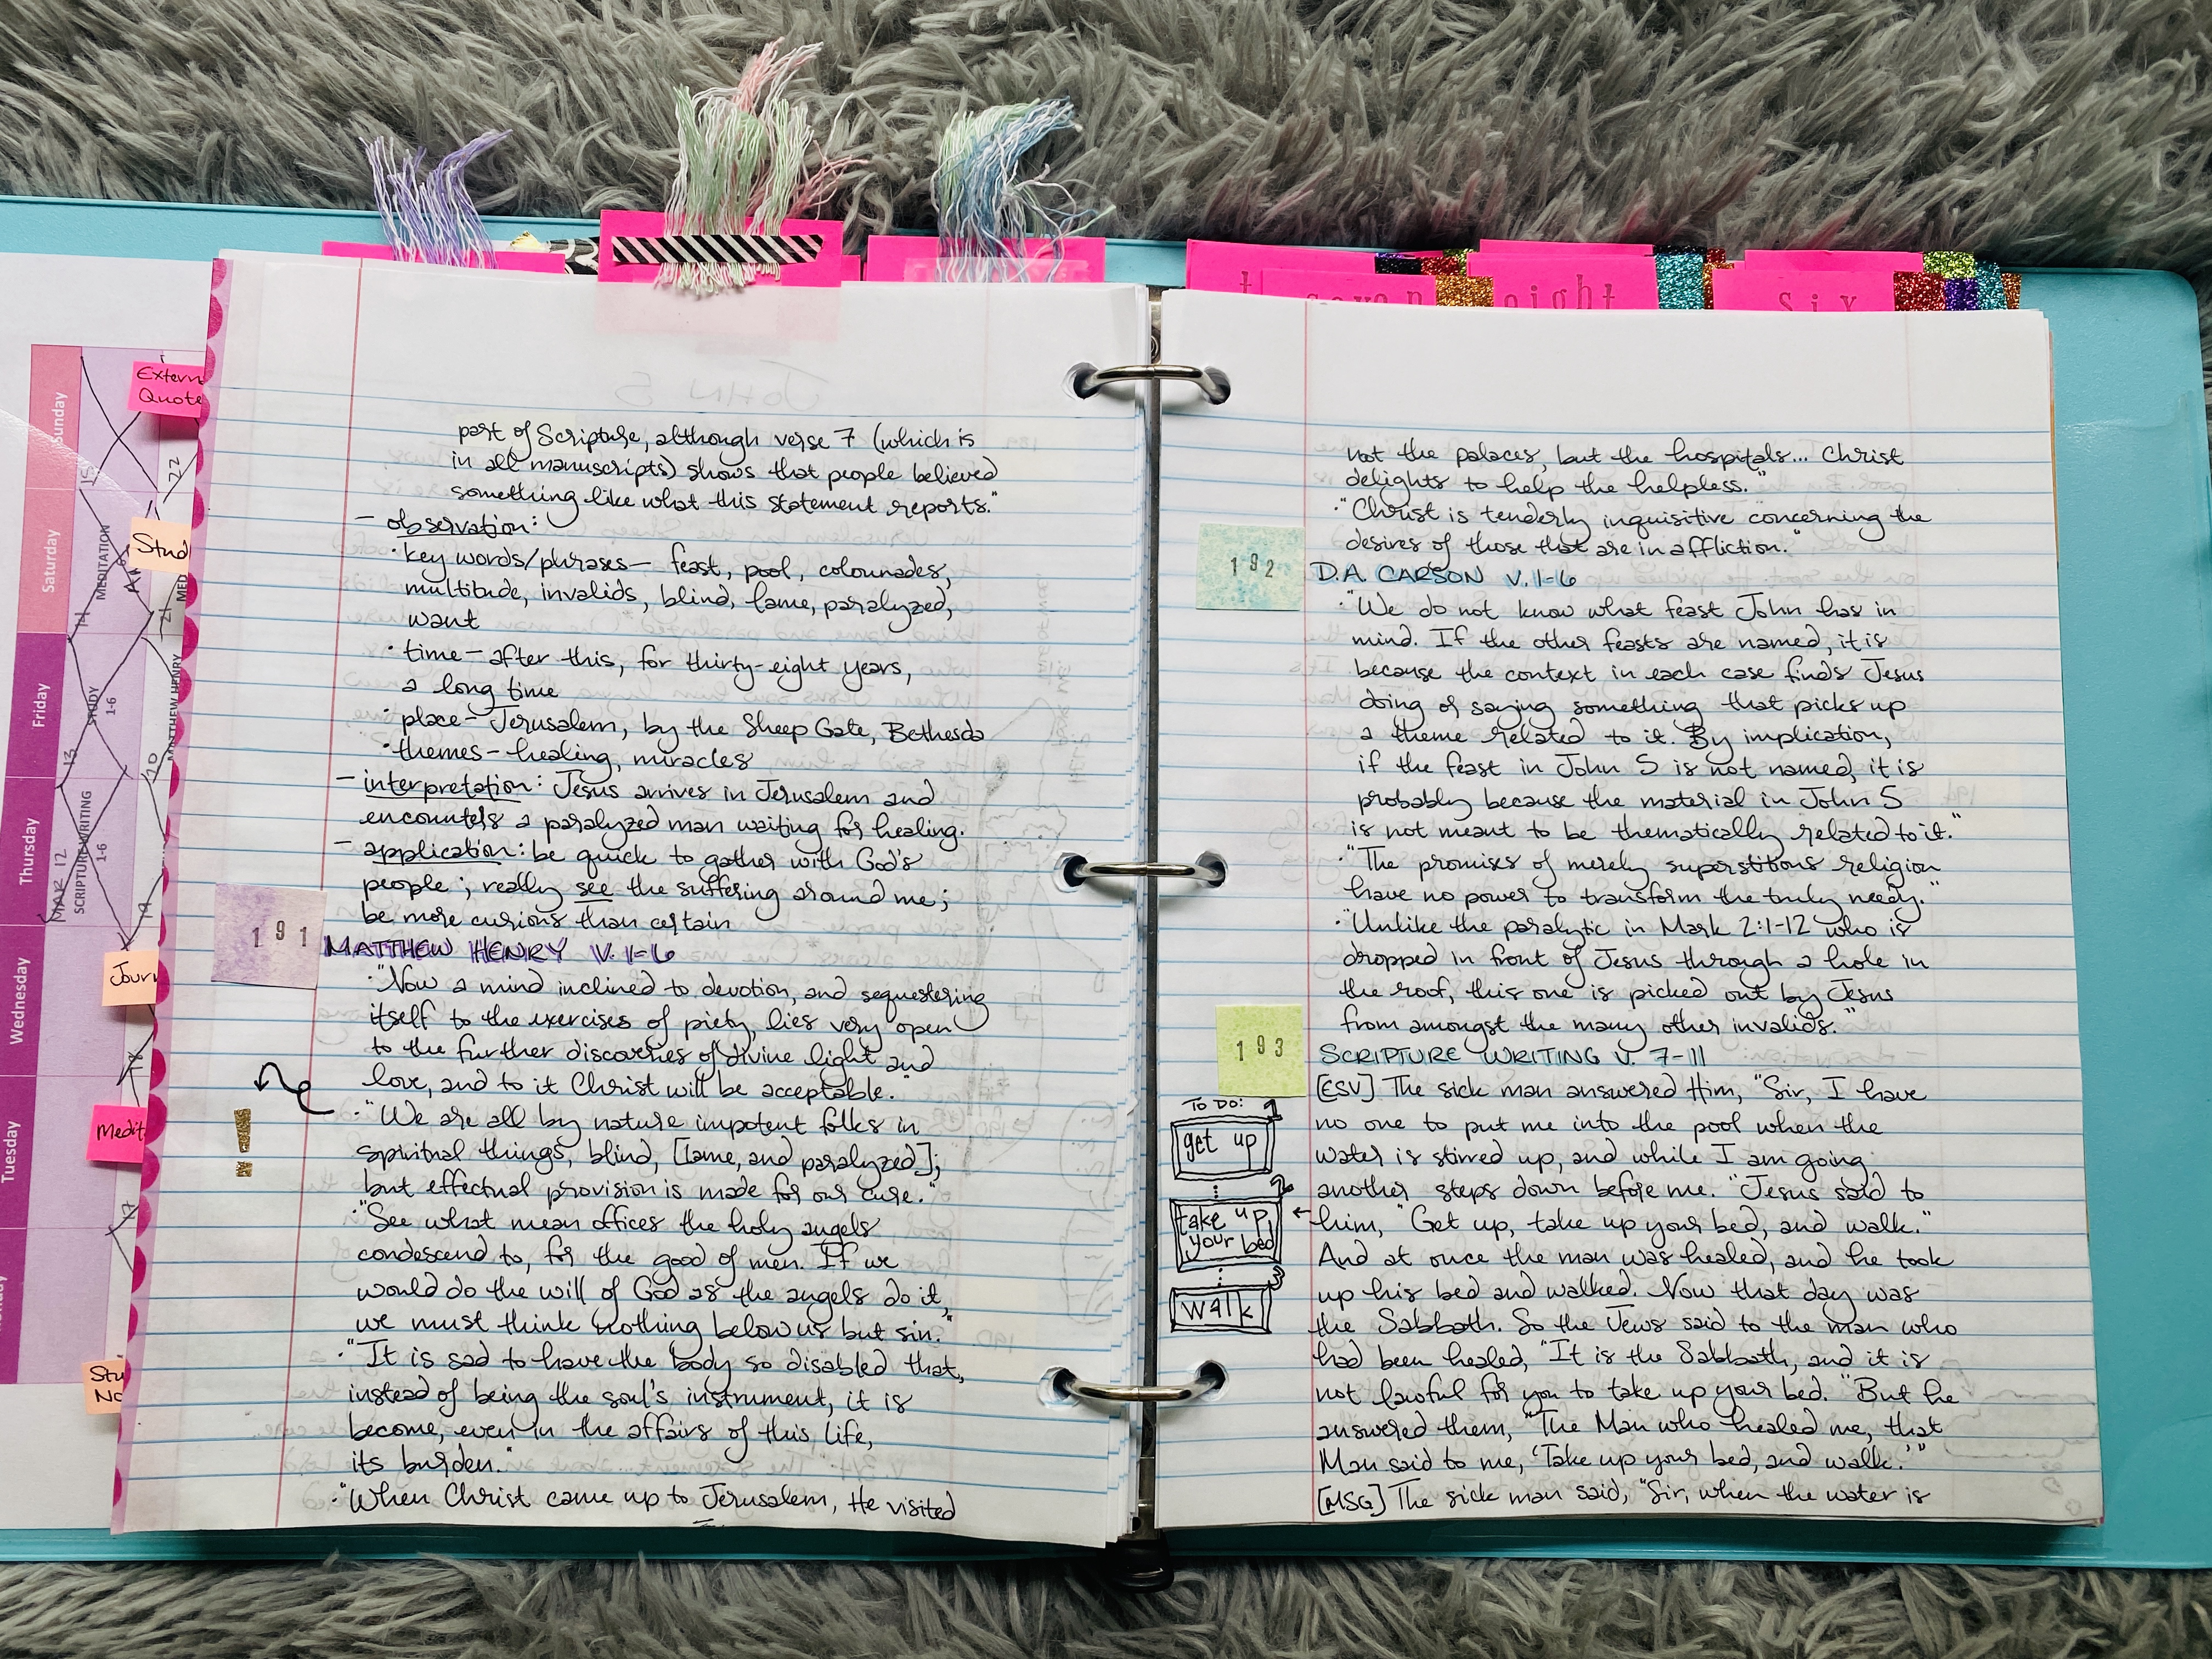 seven
eight
six
Extern
Quote
Stud
Jour
Medit
Stu
No
Sunday
Saturday
Friday
Thursday
Wednesday
Tuesday
15
22
MEDITATION
14
21
MED
STUDY
1-6
MATTHEW HENRY
13
20
SCRIPTURE WRITING
1-6
MAR 12
19
18
17
JOHN 5
part of Scripture, although verse 7 (which is
in all manuscripts) shows that people believed
something like what this statement reports."
- observation:
· key words/phrases- feast, pool, colounades,
multitude, invalids, blind, lame, paralyzed,
want
· time- after this, for thirty-eight years,
a long time
· place- Jerusalem, by the Sheep Gate, Bethesda
· themes- healing, miracles
- interpretation: Jesus arrives in Jerusalem and
encounters a paralyzed man waiting for healing.
- application: be quick to gather with God's
people; really see the suffering around me;
be more curious than certain
191
MATTHEW HENRY V. 1-6
· "Now a mind inclined to devotion, and sequestering
itself to the exercises of piety, lies very open
to the further discoveries of divine light and
love, and to it Christ will be acceptable."
· "We are all by nature impotent folks in
spiritual things, blind, [lame, and paralyzed];
but effectual provision is made for our cure."
· "See what mean offices the holy angels
condescend to, for the good of men. If we
would do the will of God as the angels do it,
we must think nothing below us but sin."
· "It is sad to have the body so disabled that,
instead of being the soul's instrument, it is
become, even in the affairs of this life,
its burden."
· "When Christ came up to Jerusalem, He visited
not the palaces, but the hospitals... Christ
delights to help the helpless."
· "Christ is tenderly inquisitive concerning the
desires of those that are in affliction."
192
D.A. CARSON V. 1-6
· "We do not know what feast John has in
mind. If the other feasts are named, it is
because the context in each case finds Jesus
doing or saying something that picks up
a theme related to it. By implication,
if the feast in John 5 is not named, it is
probably because the material in John 5
is not meant to be thematically related to it."
· "The promises of merely superstitous religion
have no power to transform the truly needy."
· "Unlike the paralytic in Mark 2:1-12 who is
dropped in front of Jesus through a hole in
the roof, this one is picked out by Jesus
from amongst the many other invalids."
193
SCRIPTURE WRITING V. 7-11
[ESV] The sick man answered Him, "Sir, I have
no one to put me into the pool when the
water is stirred up, and while I am going
another steps down before me." Jesus said to
him, "Get up, take up your bed, and walk."
And at once the man was healed, and he took
up his bed and walked. Now that day was
the Sabbath. So the Jews said to the man who
had been healed, "It is the Sabbath, and it is
not lawful for you to take up your bed." But he
answered them, "The Man who healed me, that
Man said to me, 'Take up your bed, and walk.'"
[MSG] The sick man said, "Sir, when the water is
TO DO:
1
get up
2
take up
your bed
3
walk